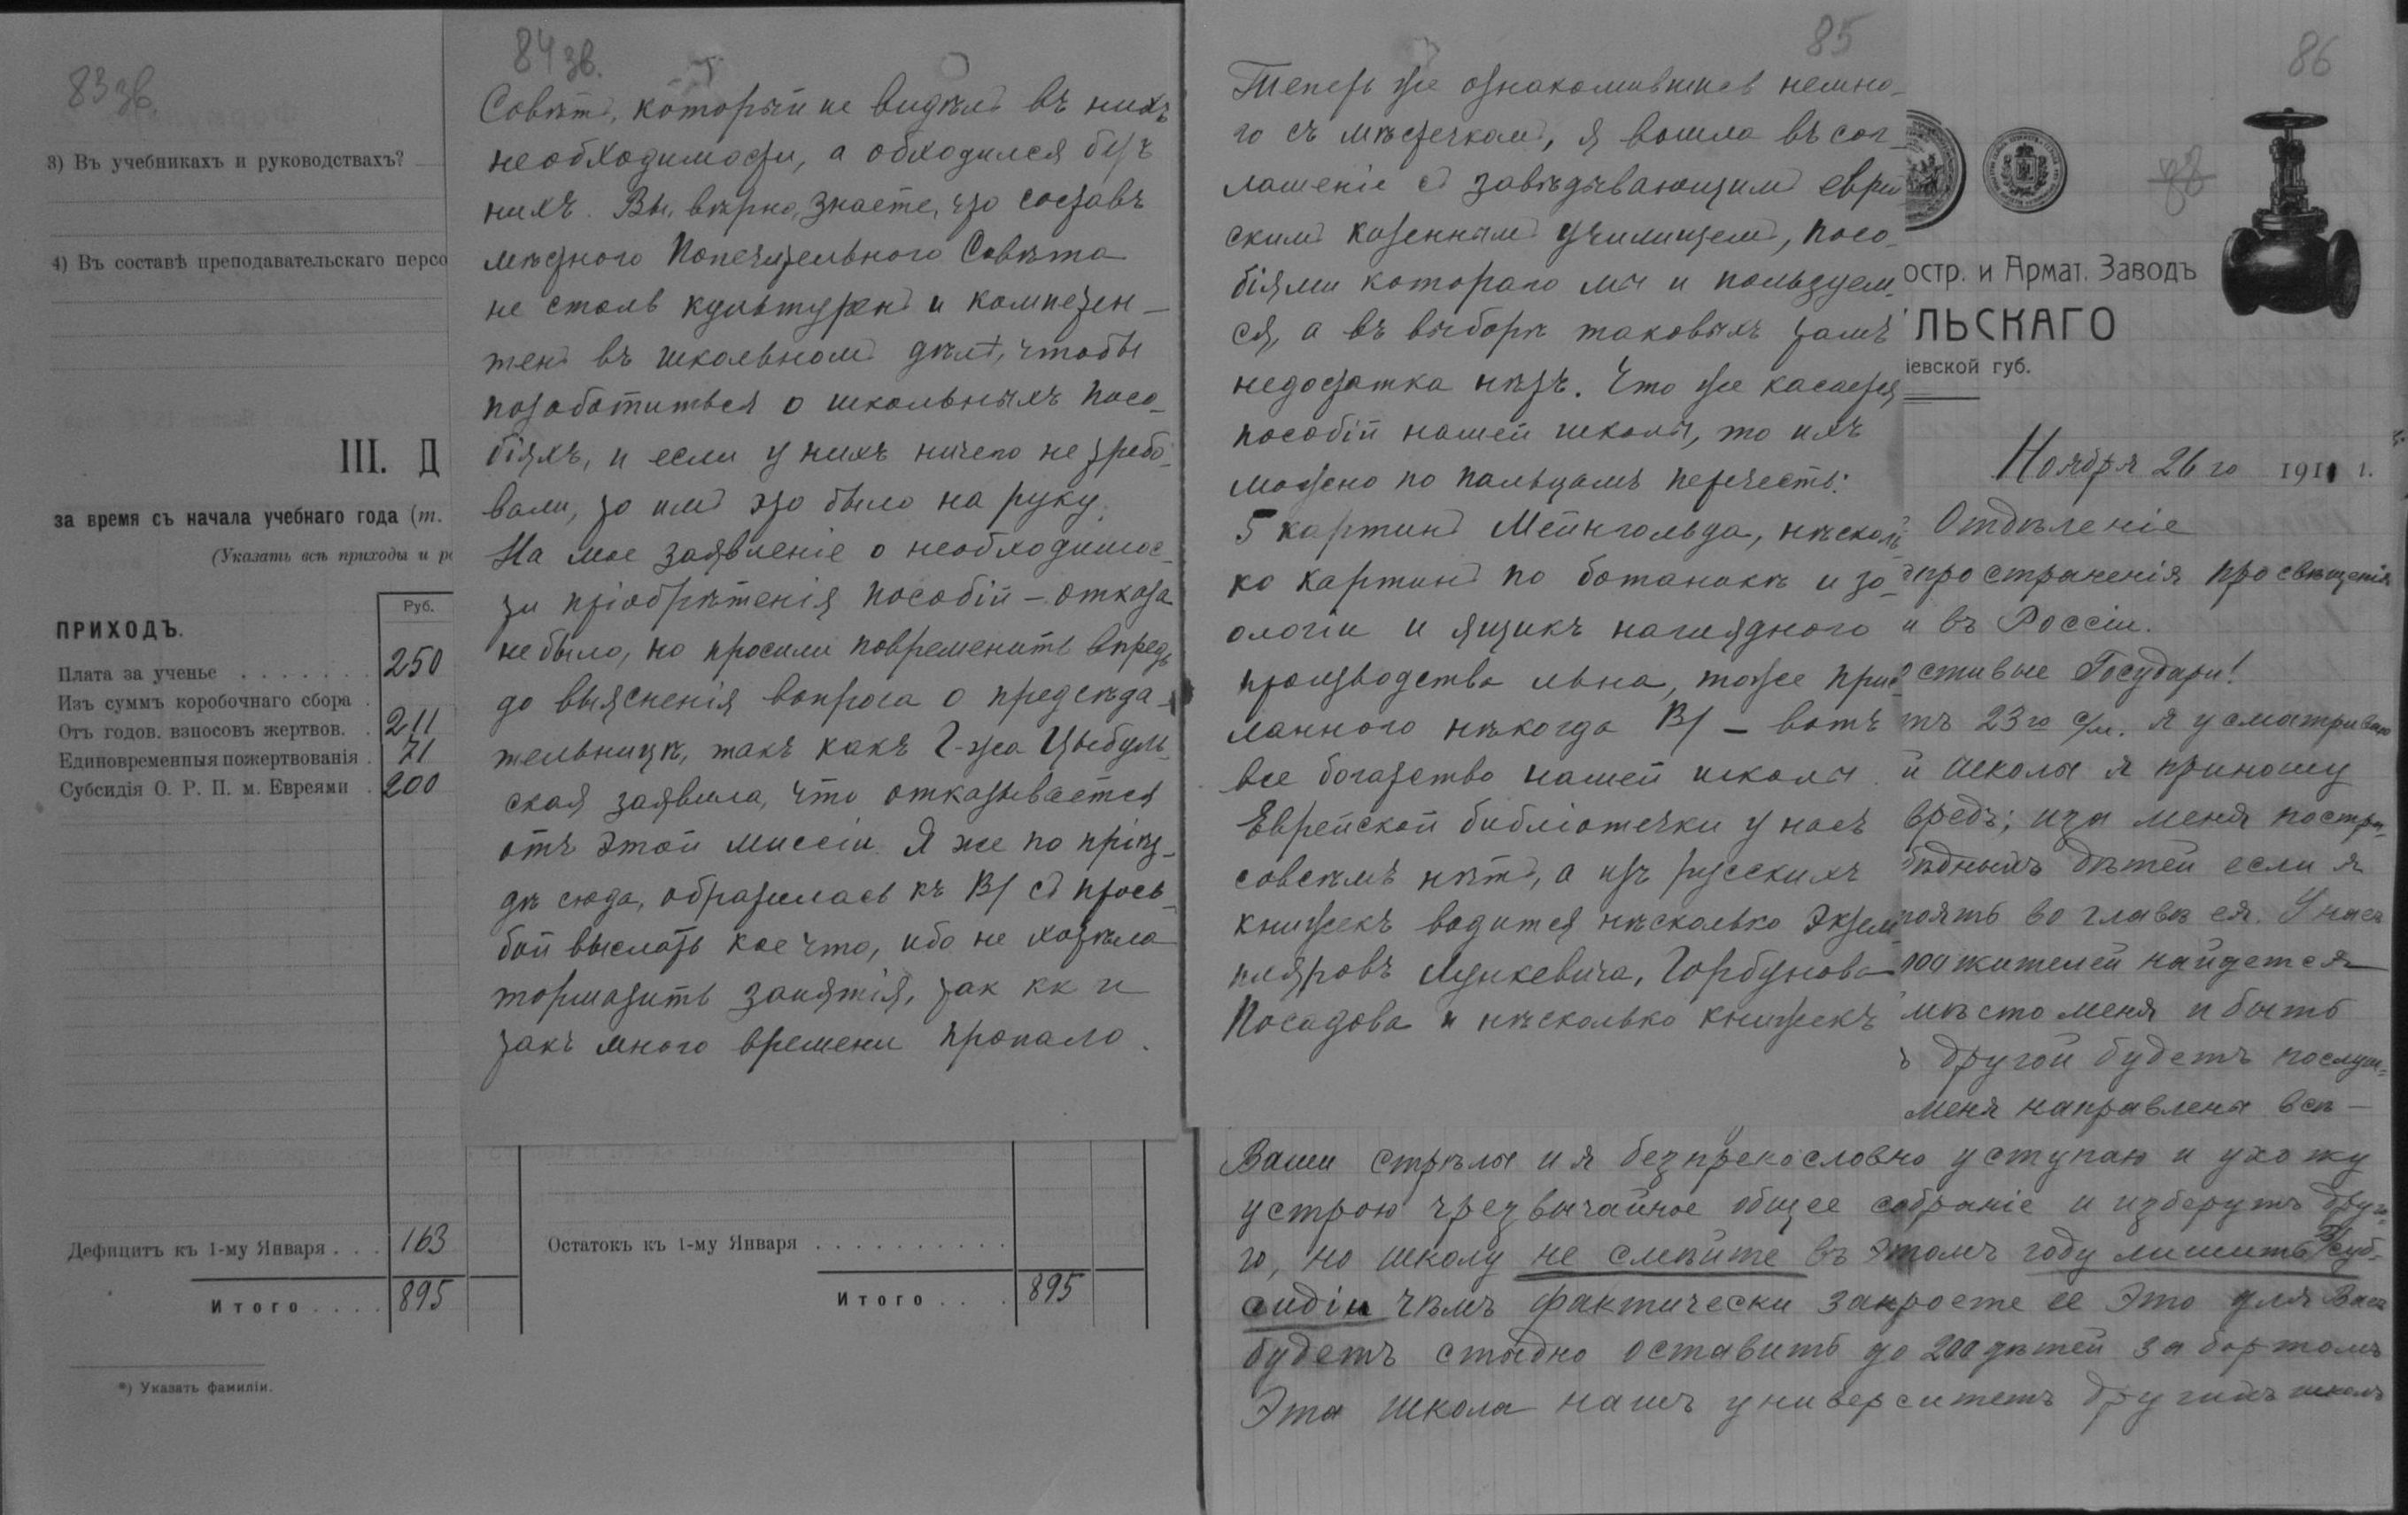 83 зв.
3) Въ учебникахъ и руководствахъ?
4) Въ составѣ преподавательскаго персо
III. Д
за время съ начала учебнаго года (т.
(Указать всѣ приходы и р
Руб.
ПРИХОДЪ.
Плата за ученье . . . . . . . 250
Изъ суммъ коробочнаго сбора .
Отъ годов. взносовъ жертвов. . 211
Единовременныя пожертвованія . 71
Субсидія О. Р. П. м. Евреями . 200
Дефицитъ къ 1-му Января . . . 163
Итого . . . . 895
*) Указать фамиліи.
84 зв.
Совѣтъ, который не видѣлъ въ нихъ
необходимости, а обходился безъ
нихъ. Вы, вѣрно, знаете, что составъ
мѣстного Попечительного Совѣта
не столь культуренъ и компетен-
тенъ въ школьномъ дѣлѣ, чтобы
позаботиться о школьныхъ посо-
біяхъ, и если у нихъ ничего не требо-
вали, то имъ это было на руку.
На мое заявленіе о необходимос-
ти пріобрѣтенія пособій – отказа
не было, но просили повременить впредь
до выясненія вопроса о предсѣда-
тельницѣ, такъ какъ Г-жа Цыбуль-
ская заявила, что отказывается
отъ этой миссіи. Я же по пріѣз-
дѣ сюда, обратилась къ В/ съ прось-
бой выслать кое что, ибо не хотѣла
тормазить занятія, так кк и
такъ много времени пропало.
Остатокъ къ 1-му Января . . . . . . . . . .
Итого . . . . 895
85
Теперь же ознакомившись немно-
го съ мѣстечкомъ, я вошла въ сог-
лашеніе съ завѣдывающимъ еврей
скимъ казеннымъ училищемъ, посо-
біями котораго мы и пользуем-
ся, а въ выборѣ таковыхъ тамъ
недостатка нѣтъ. Что же касается
пособій нашей школы, то ихъ
можно по пальцамъ перечесть:
5 картинъ Мейнгольда, нѣсколь
ко картинъ по ботаникѣ и зо-
ологіи и ящикъ нагляднаго
производства льна, тоже прис
ланного нѣкогда В/ – вотъ
все богатство нашей школы.
Еврейской библіотечки у насъ
совсѣмъ нѣтъ, а изъ русскихъ
книжекъ водится нѣсколько экзем-
пляровъ Лункевича, Горбунова
Посадова и нѣсколько книжекъ
86
88
остр. и Армат. Заводъ
ЛЬСКАГО
іевской губ.
Ноября 26 го 1911 г.
Отдѣленіе
просtраненія просвѣщенія
и въ Россіи.
стивые Государи!
тъ 23 го с/м. я усматриваю
й школы я приношу
вредъ; иза меня постра-
бѣднымъ дѣтей если я
тоять во главѣ ея. У насъ
жителей найдется
мѣсто меня и быть
ъ другой будетъ послуш-
меня направлены всѣ –
Ваши стрѣлы и я безпрекословно уступаю и ухожу
устрою чрезвычайное общее собраніе и изберутъ друго-
го, но школу не смѣйте въ этомъ году лишить суб-
сидіи чѣмъ фактически закроете ее Это для Васъ
будетъ стыдно оставить до 200 дѣтей за бортомъ
Эта школа нашъ университетъ другихъ школъ